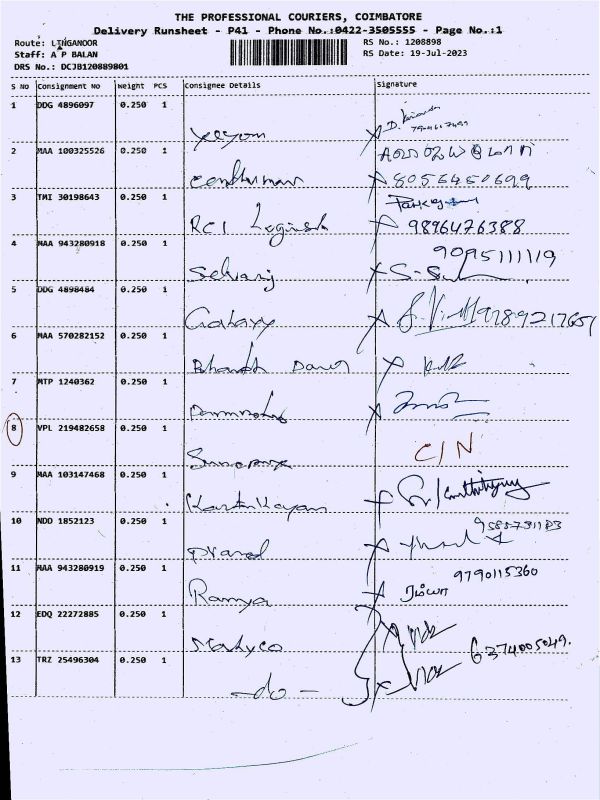 THE PROFESSIONAL COURIERS, COIMBATORE
Delivery Runsheet - P41 - Phone No.:0422-3505555 - Page No.:1
Route: LINGANOOR
RS No.: 1208898
Staff: A P BALAN
RS Date: 19-Jul-2023
DRS No.: DCJB120889801
S No Consignment No Weight PCS Consignee Details Signature
1 DDG 4896097 0.250 1
2 MAA 100325526 0.250 1
8056450699
3 TMI 30198643 0.250 1
RCI 9896476388
4 MAA 943280918 0.250 1
9095111119
Selvaraj
5 DDG 4898484 0.250 1
Galaxy
6 MAA 570282152 0.250 1
Bharath
7 MTP 1240362 0.250 1
8 VPL 219482658 0.250 1
C/N
9 MAA 103147468 0.250 1
Karthikeyan
10 NDD 1852123 0.250 1
11 MAA 943280919 0.250 1
9790115360
Ramya ரம்யா
12 EDQ 22272885 0.250 1
Mahyco 6374005049.
13 TRZ 25496304 0.250 1
-do-